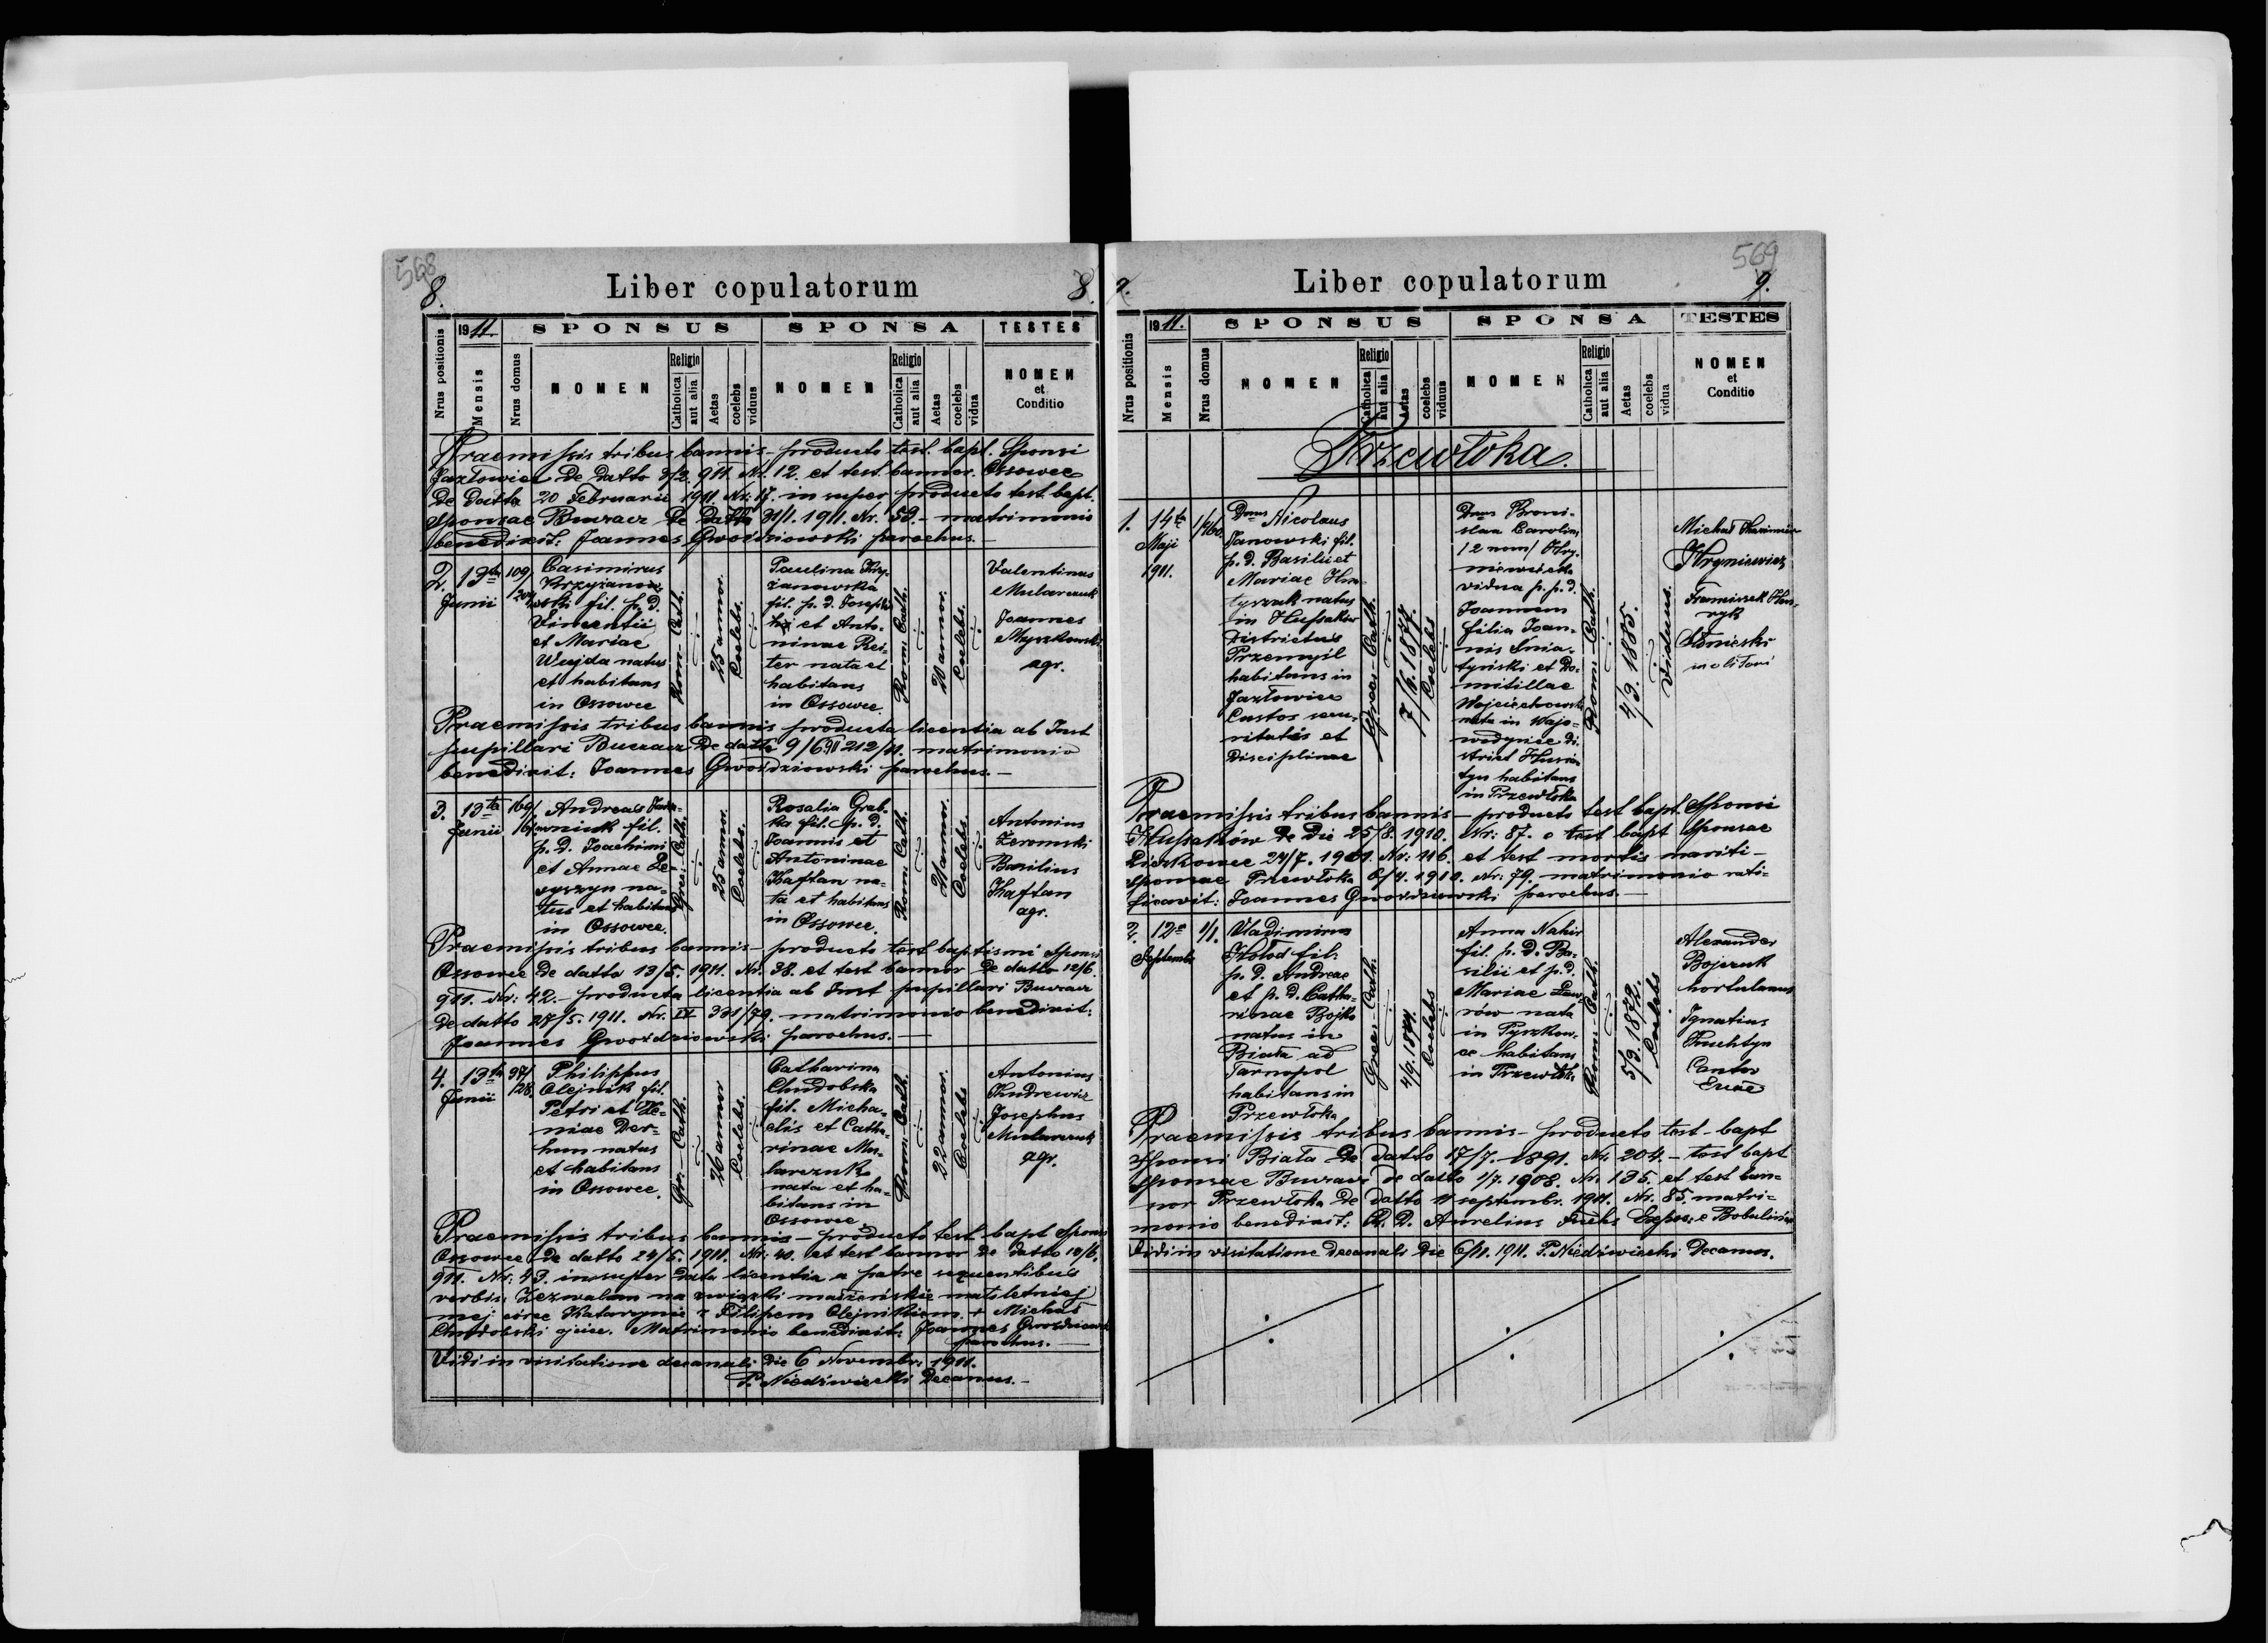 568
8.
Liber copulatorum
8.
Nrus positionis
1911.
Mensis
Nrus domus
SPONSUS
NOMEN
Religio
Catholica
aut alia
Aetas
coelebs
viduus
SPONSA
NOMEN
Religio
Catholica
aut alia
Aetas
coelebs
vidua
TESTES
NOMEN
et
Conditio
Praemissis tribus bannis - producto test. bapt. Sponsi
Jazłowiec De Datto 3/2 911. Nr. 12. et test. bannor. Ossowce
De Datto 20 Februarii 1911. Nr: 17. in super producto test bapt.
Sponsae Buczacz De Datto 31/1. 1911. Nr. 59. - matrimonio
benedixit: Joannes Gwoździowski parochus. -
2.
13ta
Junii
109/
204
Casimirus
Krzyżanow-
wski fil. p. D.
Vincentii
et Mariae
Wujda natus
et habitans
in Ossowce
Rom: Cath.
25 annor.
Coelebs.
Paulina Kry-
żanowska
fil. p. d. Josephi
et Anto-
ninae Rei-
ter nata et
habitans
in Ossowce.
Rom: Cath.
20 annor.
Coelebs.
Valentinus
Mularczuk
Joannes
Myszkowski
agr.
Praemissis tribus bannis producta licentia ab Inst
pupillari Buczacz De datto 9/6 911 212/11. matrimonio
benedixit: Joannes Gwoździowski parochus. -
3.
13ta
Junii
169/
Andreas
fil.
p. D. Joachimi
et Annae
na-
tus et habitans
in Ossowce.
Grec: Cath.
25 annor.
Coelebs.
Rosalia Grab-
ka fil. p. D.
Joannis et
Antoninae
Kaftan na-
ta et habitans
in Ossowce.
Rom: Cath.
21 annor.
Coelebs.
Antonius
Żeromski
Basilius
Kaftan
agr.
Praemissis tribus bannis - producto test baptismi Sponsi
Ossowce De datto 13/5. 1911. Nr. 38. et test bannor De datto 12/6.
911. Nr: 42. - producta licentia ab Inst pupillari Buczacz
De datto 27/5. 1911. Nr. IV 331/79. matrimonio benedixit:
Joannes Gwoździowski parochus. -
4.
13ta
Junii
37/
128
Philippus
Olejnik fil.
Petri et Xe-
niae Der-
hun natus
et habitans
in Ossowce.
Gr: Cath.
26 annor
Coelebs.
Catharina
Chudobska
fil. Micha-
elis et Catha-
rinae Mu-
larczuk
nata et ha-
bitans in
Ossowce.
Rom: Cath.
22 annor.
Coelebs
Antonius
Andrewicz
Josephus
Mularczuk
agr.
Praemissis tribus bannis - producto test bapt Sponsi
Ossowce De datto 24/5. 1911. Nr: 40. et test bannor De datto 12/6.
911. Nr: 43. insuper Data licentia a patre sequentibus
verbis: Zezwalam na związki małżeńskie małoletniej
mej córce Katarzynie z Filipem Olejnikiem + Michał
Chudobski ojciec. Matrimonio benedixit: Joannes Gwoździowski
parochus. -
Vidi in visitatione decanali Die 6 Novembr. 1911.
P. Niedźwiecki Decanus. -
569
9.
Liber copulatorum
9.
Nrus positionis
1911.
Mensis
Nrus domus
SPONSUS
NOMEN
Religio
Catholica
aut alia
Aetas
coelebs
viduus
SPONSA
NOMEN
Religio
Catholica
aut alia
Aetas
coelebs
vidua
TESTES
NOMEN
et
Conditio
Przewłoka.
1.
14ta
Maji
1911.
1/460.
Dnus Nicolaus
Janowski fil.
p. d. Basilii et
Mariae Hra-
tyszuk natus
in Hussaków
Districtus
Przemyśl
habitans in
Jazłowice
Custos secu-
ritatis et
Disciplinae
Graec: Cath.
7/6. 1877.
Coelebs
Dna Broni-
slaa Carolina
/2 nom/ Hry-
niewiecka
vidua p. p. d.
Joannem
filia Joan-
nis Śnia-
tyński et Do-
mitillae
Wojciechowska
nata in Wojo-
wodyńce Di-
strict Husia-
tyn habitans
in Przewłoka
Rom: Cath.
4/3. 1885.
Viduus.
Michał Kazimierz
Hryniewicz
Franciszek Hen-
ryk
Słoniecki
Praemissis tribus bannis - producto test bapt. Sponsi
Hussaków De Die 25/8. 1910. Nr: 87. o test bapt Sponsae
Liczkowce 24/7. 1901. Nr: 116. et test mortis mariti -
Sponsae Przewłoka 6/4. 1910. Nr: 79. matrimonio rati-
ficavit: Joannes Gwoździowski parochus. -
2.
12a
Septembr.
1/1.
Vladimirus
Kołod fil:
p. D. Andreae
et p. D. Catha-
rinae Bojko
natus in
Biała ad
Tarnopol
habitans in
Przewłoka
Grec: Cath.
4/9. 1874.
Coelebs
Anna Nahir
fil. p. D. Ba-
silii et p. D.
Mariae Law-
rów nata
in Pyszkow-
ce habitans
in Przewłoka
Rom: Cath.
5/9. 1872.
Coelebs
Alexander
Bojczuk
hortulanus
Ignatius
Fruchtyn
Cantor
Eccae
Praemissis tribus bannis - producto test - bapt
Sponsi Biała De datto 17/7. 1891. Nr. 204. - test bapt
Sponsae Buczacz de datto 1/7. 1908. Nr: 135. et test ban-
nor Przewłoka De Datto 11 septembr. 1911. Nr. 85. matri-
monio benedixit: R. D. Aurelius Fuchs Expos: e Bobulińce
Vidi in visitatione Decanali Die 6/11. 1911. P. Niedźwiecki Decanus.